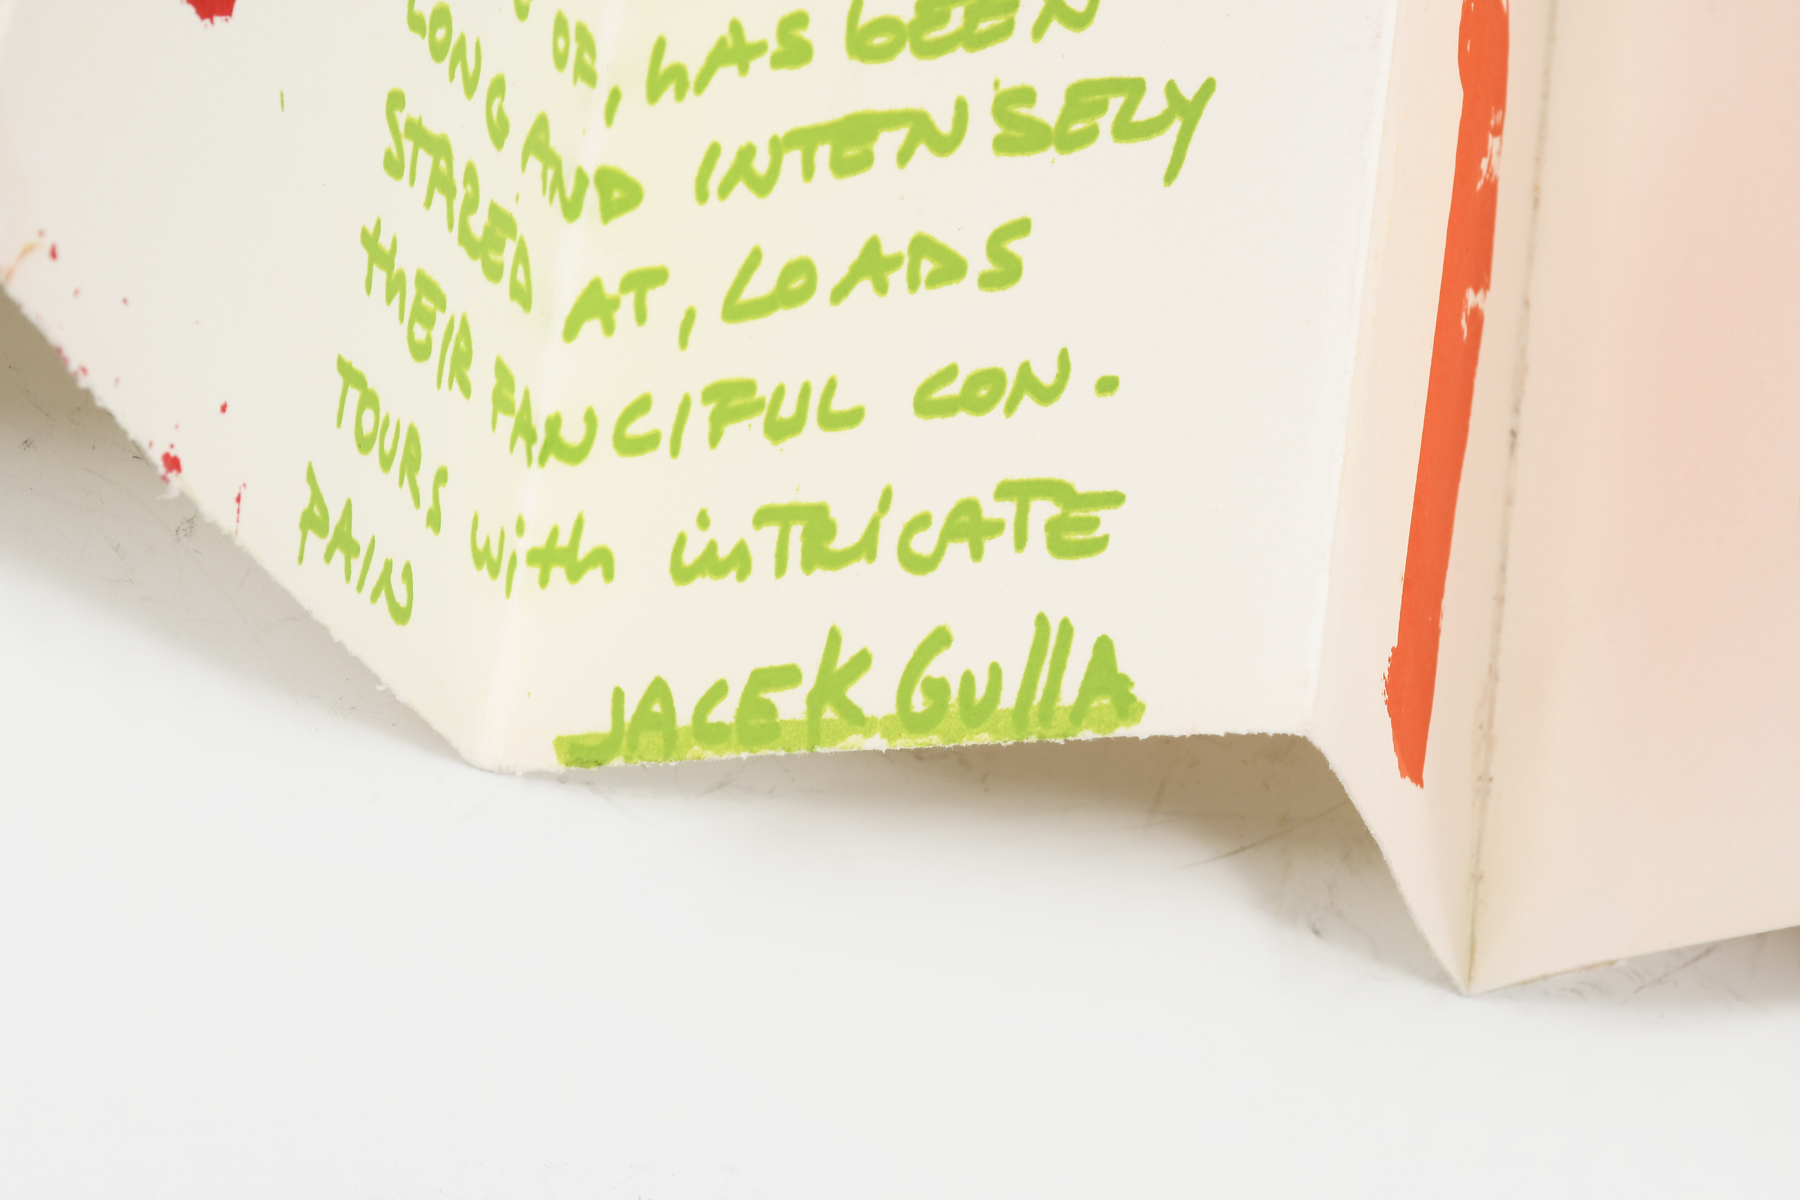 OF, hAS bEEN
LONG AND INTENSELY
STARED AT, LOADS
thEIR FANCIFUL CON-
TOURS with inTRiCATE
PAIN
JACEK GullA